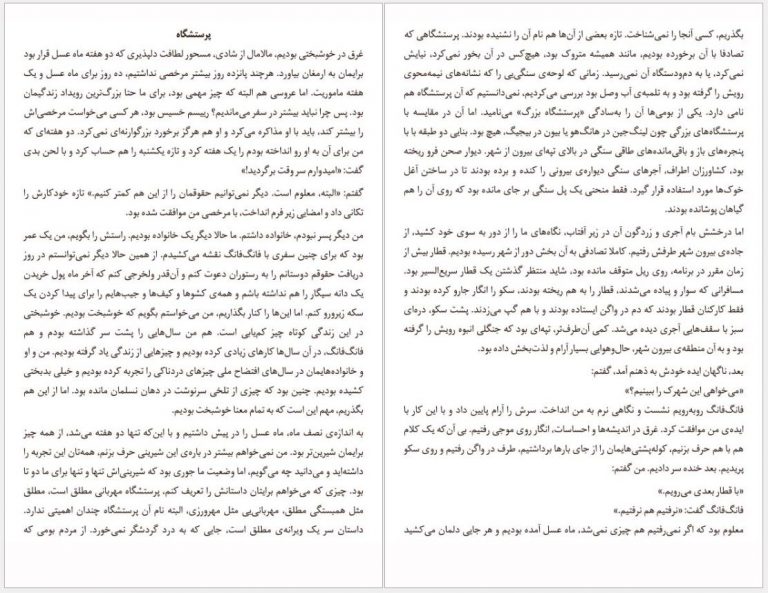 پرستشگاه
غرق در خوشبختی بودیم، مالامال از شادی، مسحور لطافت دلپذیری که دو هفته ماه عسل قرار بود
برایمان به ارمغان بیاورد. هرچند پانزده روز بیشتر مرخصی نداشتیم، ده روز برای ماه عسل و یک
هفته ماموریت. اما عروسی هم البته که چیز مهمی بود، برای ما حتا بزرگ‌ترین رویداد زندگیمان
بود. پس چرا نباید بیشتر در سفر می‌ماندیم؟ رییسم خسیس بود، هر کسی می‌خواست مرخصی‌اش
را بیشتر کند، باید با او مذاکره می‌کرد و او هم هرگز برخورد بزرگوارانه‌ای نمی‌کرد. دو هفته‌ای که
من برای آن به او رو انداخته بودم را یک هفته کرد و تازه یکشنبه را هم حساب کرد و با لحن بدی
گفت: «امیدوارم سر وقت برگردید!»
گفتم: «البته، معلوم است. دیگر نمی‌توانیم حقوقمان را از این هم کمتر کنیم.» تازه خودکارش را
تکانی داد و امضایی زیر فرم انداخت، با مرخصی من موافقت شده بود.
من دیگر پسر نبودم، خانواده داشتم. ما حالا دیگر یک خانواده بودیم. راستش را بگویم، من یک عمر
بود که برای چنین سفری با فانگ‌فانگ نقشه می‌کشیدم. از همین حالا دیگر نمی‌توانستم در روز
دریافت حقوقم دوستانم را به رستوران دعوت کنم و آن‌قدر ولخرجی کنم که آخر ماه پول خریدن
یک دانه سیگار را هم نداشته باشم و همه‌ی کشوها و کیف‌ها و جیب‌هایم را برای پیدا کردن یک
سکه زیرورو کنم. اما این‌ها را کنار بگذاریم، من می‌خواستم بگویم که خوشبخت بودیم. خوشبختی
در این زندگی کوتاه چیز کم‌یابی است. هم من سال‌هایی را پشت سر گذاشته بودم و هم
فانگ‌فانگ، در آن سال‌ها کارهای زیادی کرده بودیم و چیزهایی از زندگی یاد گرفته بودیم. من و او
و خانواده‌هایمان در سال‌های افتضاح ملی چیزهای دردناکی را تجربه کرده بودیم و خیلی بدبختی
کشیده بودیم. چنین بود که چیزی از تلخی سرنوشت در دهان نسلمان مانده بود. اما از این هم
بگذریم، مهم این است که به تمام معنا خوشبخت بودیم.
به اندازه‌ی نصف ماه، ماه عسل را در پیش داشتیم و با این‌که تنها دو هفته می‌شد، از همه چیز
برایمان شیرین‌تر بود. من نمی‌خواهم بیشتر در باره‌ی این شیرینی حرف بزنم، همه‌تان این تجربه را
داشته‌اید و می‌دانید چه می‌گویم، اما وضعیت ما جوری بود که شیرینی‌اش تنها و تنها برای ما دو تا
بود. چیزی که می‌خواهم برایتان داستانش را تعریف کنم، پرستشگاه مهربانی مطلق است، مطلق
مثل همبستگی مطلق، مهربانی‌یی مثل مهرورزی، البته نام آن پرستشگاه چندان اهمیتی ندارد.
داستان سر یک ویرانه‌ی مطلق است، جایی که به درد گردشگر نمی‌خورد. از مردم بومی که
بگذریم، کسی آنجا را نمی‌شناخت. تازه بعضی از آن‌ها هم نام آن را نشنیده بودند. پرستشگاهی که
تصادفا با آن برخورده بودیم، مانند همیشه متروک بود، هیچ‌کس در آن بخور نمی‌کرد، نیایش
نمی‌کرد، یا به دم‌ودستگاه آن نمی‌رسید. زمانی که لوحه‌ی سنگی‌یی را که نشانه‌های نیمه‌محوی
رویش را گرفته بود و به تلمبه‌ی آب وصل بود بررسی می‌کردیم، نمی‌دانستیم که آن پرستشگاه هم
نامی دارد. یکی از بومی‌ها آن را به‌سادگی «پرستشگاه بزرگ» می‌نامید. اما آن در مقایسه با
پرستشگاه‌های بزرگی چون لینگ‌جین در هانگ‌هو یا بیون در بیجیگ، هیچ بود. بنایی دو طبقه با با
پنجره‌های باز و باقی‌مانده‌های طاقی سنگی در بالای تپه‌ای بیرون از شهر. دیوار صحن فرو ریخته
بود، کشاورزان اطراف، آجرهای سنگی دیواره‌ی بیرونی را کنده و برده بودند تا در ساختن آغل
خوک‌ها مورد استفاده قرار گیرد. فقط منحنی یک پل سنگی بر جای مانده بود که روی آن را هم
گیاهان پوشانده بودند.
اما درخشش بام آجری و زردگون آن در زیر آفتاب، نگاه‌های ما را از دور به سوی خود کشید، از
جاده‌ی بیرون شهر طرفش رفتیم. کاملا تصادفی به آن بخش دور از شهر رسیده بودیم. قطار بیش از
زمان مقرر در برنامه، روی ریل متوقف مانده بود، شاید منتظر گذشتن یک قطار سریع‌السیر بود.
مسافرانی که سوار و پیاده می‌شدند، قطار را به هم ریخته بودند، سکو را انگار جارو کرده بودند و
فقط کارکنان قطار بودند که دم در واگن ایستاده بودند و با هم گپ می‌زدند. پشت سکو، دره‌ای
سبز با سقف‌هایی آجری دیده می‌شد. کمی آن‌طرف‌تر، تپه‌ای بود که جنگلی انبوه رویش را گرفته
بود و به آن منطقه‌ی بیرون شهر، حال‌وهوایی بسیار آرام و لذت‌بخش داده بود.
بعد، ناگهان ایده خودش به ذهنم آمد، گفتم:
«می‌خواهی این شهرک را ببینیم؟»
فانگ‌فانگ روبه‌رویم نشست و نگاهی نرم به من انداخت. سرش را آرام پایین داد و با این کار با
ایده‌ی من موافقت کرد. غرق در اندیشه‌ها و احساسات، انگار روی موجی رفتیم. بی آن‌که یک کلام
هم با هم حرف بزنیم، کوله‌پشتی‌هایمان را از جای بارها برداشتیم، طرف در واگن رفتیم و روی سکو
پریدیم. بعد خنده سر دادیم. من گفتم:
«با قطار بعدی می‌رویم.»
فانگ‌فانگ گفت: «نرفتیم هم نرفتیم.»
معلوم بود که اگر نمی‌رفتیم هم چیزی نمی‌شد، ماه عسل آمده بودیم و هر جایی دلمان می‌کشید